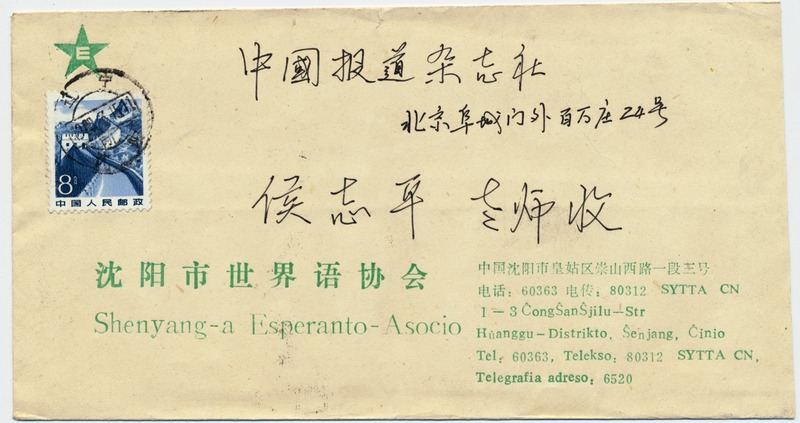 E
中國报道杂志社
北京阜城门外百万庄24号
8分
中国人民邮政
侯志平 老师收
沈阳市世界语协会
Shenyang-a Esperanto-Asocio
中国沈阳市皇姑区崇山西路一段三号
电话：60363 电传：80312 SYTTA CN
1－3 ĈongŜanŜjilu－Str
Huanggu－Distrikto, Ŝenjang, Ĉinio
Tel：60363, Telekso：80312 SYTTA CN,
Telegrafia adreso：6520